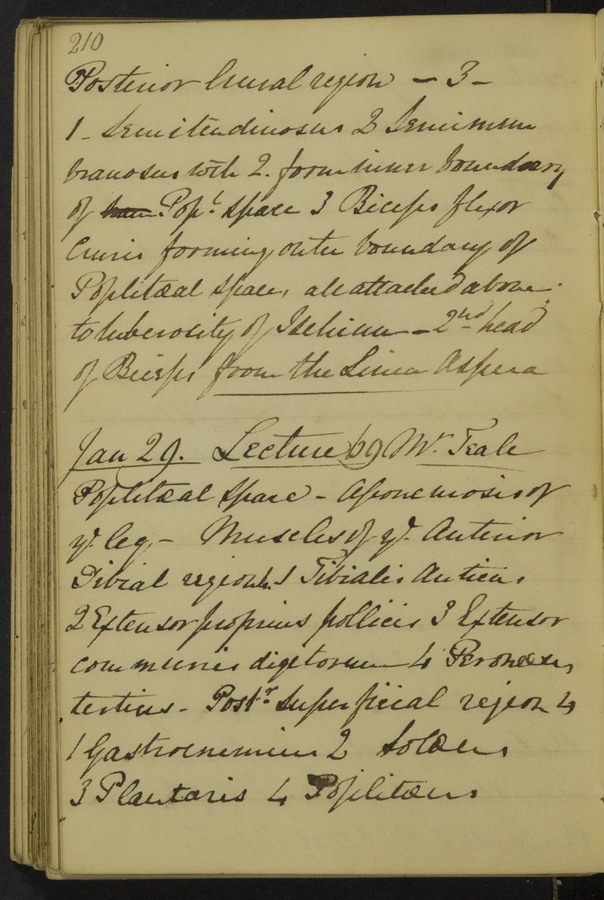 210
Posterior Crural region - 3 -
1 - Semitendinosus 2 Semimem
branosus with 2. form inner boundary
of Popl. Space 3 Biceps flexor
Cruris forming outer boundary of
Poplitæal space, all attached above
to tuberosity of Ischium - 2nd head
of Biceps from the Linea Aspera
Jan 29. Lecture 69 Mr. Teale
Poplitæal Space - Aponeurosis of
ye. leg - Muscles of ye. Anterior
Tibial region 4. 1 Tibialis Anticus
2 Extensor proprius pollicis 3 Extensor
communis digitorum - 4 Peronæus
tertius - Postr. Superficial region 4
1 Gastrocnemius 2 Solæus
3 Plantaris 4 Poplitæus